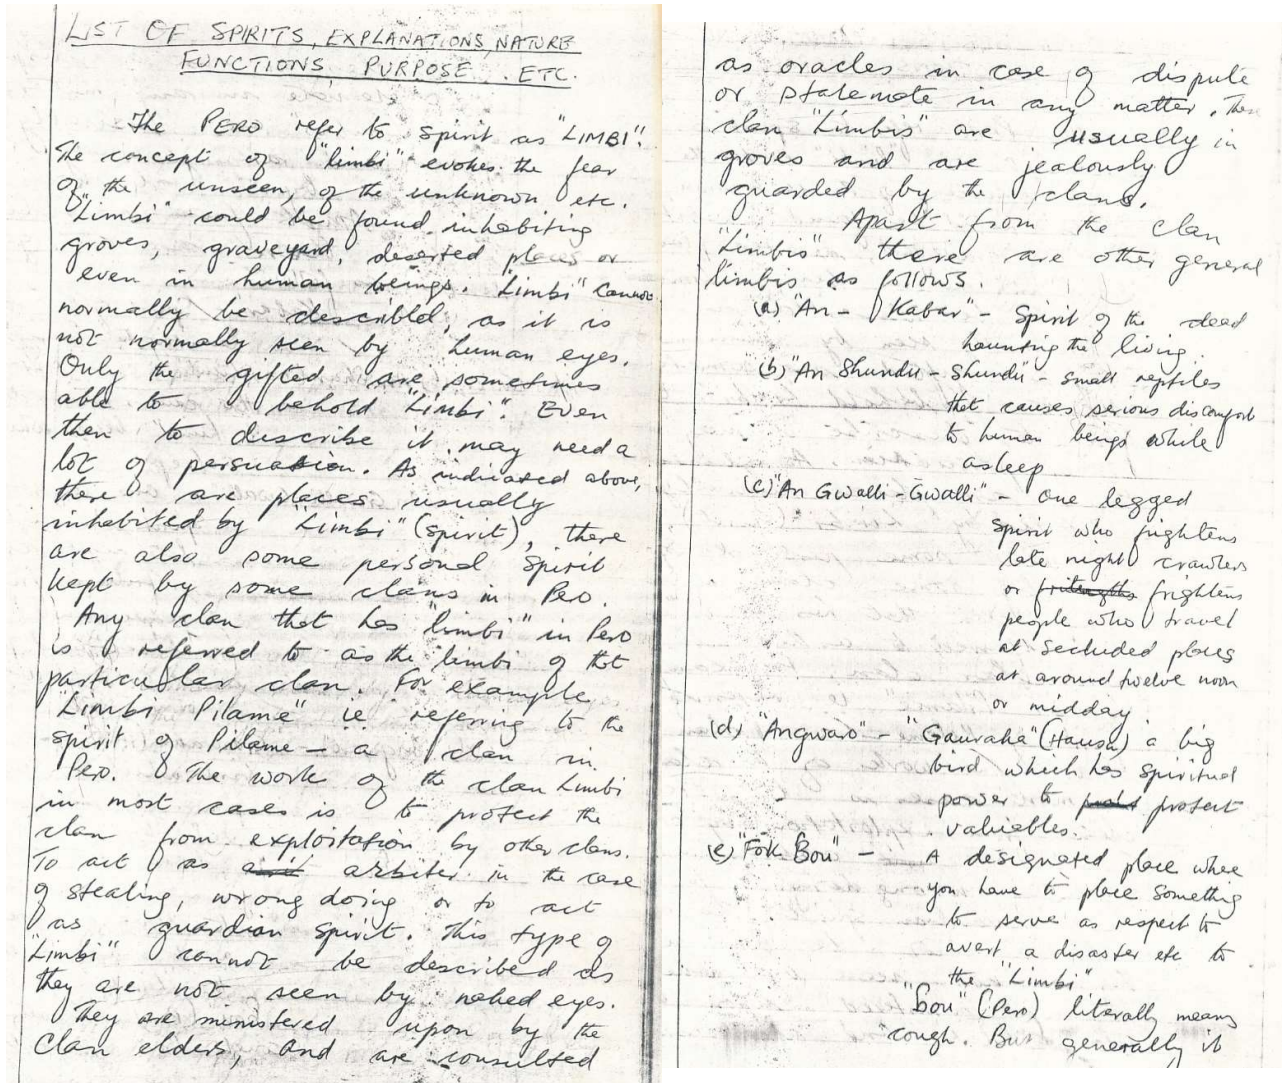 LIST OF SPIRITS, EXPLANATIONS, NATURE
FUNCTIONS, PURPOSE. ETC.
The PERO refer to spirit as "LIMBI".
The concept of "limbi" evokes the fear
of the unseen, of the unknown etc.
"Limbi" could be found inhabiting
groves, graveyard, deserted places or
even in human beings. "Limbi" cannot
normally be described, as it is
not normally seen by human eyes.
Only the gifted are sometimes
able to behold "Limbi". Even
then to describe it may need a
lot of persuasion. As indicated above,
there are places usually
inhabited by "Limbi" (spirit), there
are also some personal spirit
kept by some clans in Pero.
Any clan that has "limbi" in Pero
is referred to as the limbi of that
particular clan. For example
"Limbi Pilame" ie referring to the
spirit of Pilame - a clan in
Pero. The work of the clan Limbi
in most cases is to protect the
clan from exploitation by other clans.
To act as arbiter in the case
of stealing, wrong doing or to act
as guardian spirit. This type of
"Limbi" cannot be described as
they are not seen by naked eyes.
They are ministered upon by the
clan elders, and are consulted
as oracles in case of dispute
or stalemate in any matter. These
clan "Limbis" are usually in
groves and are jealously
guarded by the clans.
Apart from the clan
"Limbis" there are other general
limbis as follows.
(a) "An - Kabar" - Spirit of the dead
haunting the living.
(b) "An Shundu - Shundu - small reptiles
that causes serious discomfort
to human beings while
asleep
(c) "An Gwalli - Gwalli" - one legged
spirit who frightens
late night crawlers
or frightens
people who travel
at secluded places
at around twelve noon
or midday
(d) "Angwaro" - "Gauraka" (Hausa) a big
bird which has spiritual
power to protect
valuables.
(e) "Fok Bou" - A designated place where
you have to place something
to serve as respect to
avert a disaster etc to
the "Limbi"
"bou" (Pero) literally means
"cough. But generally it